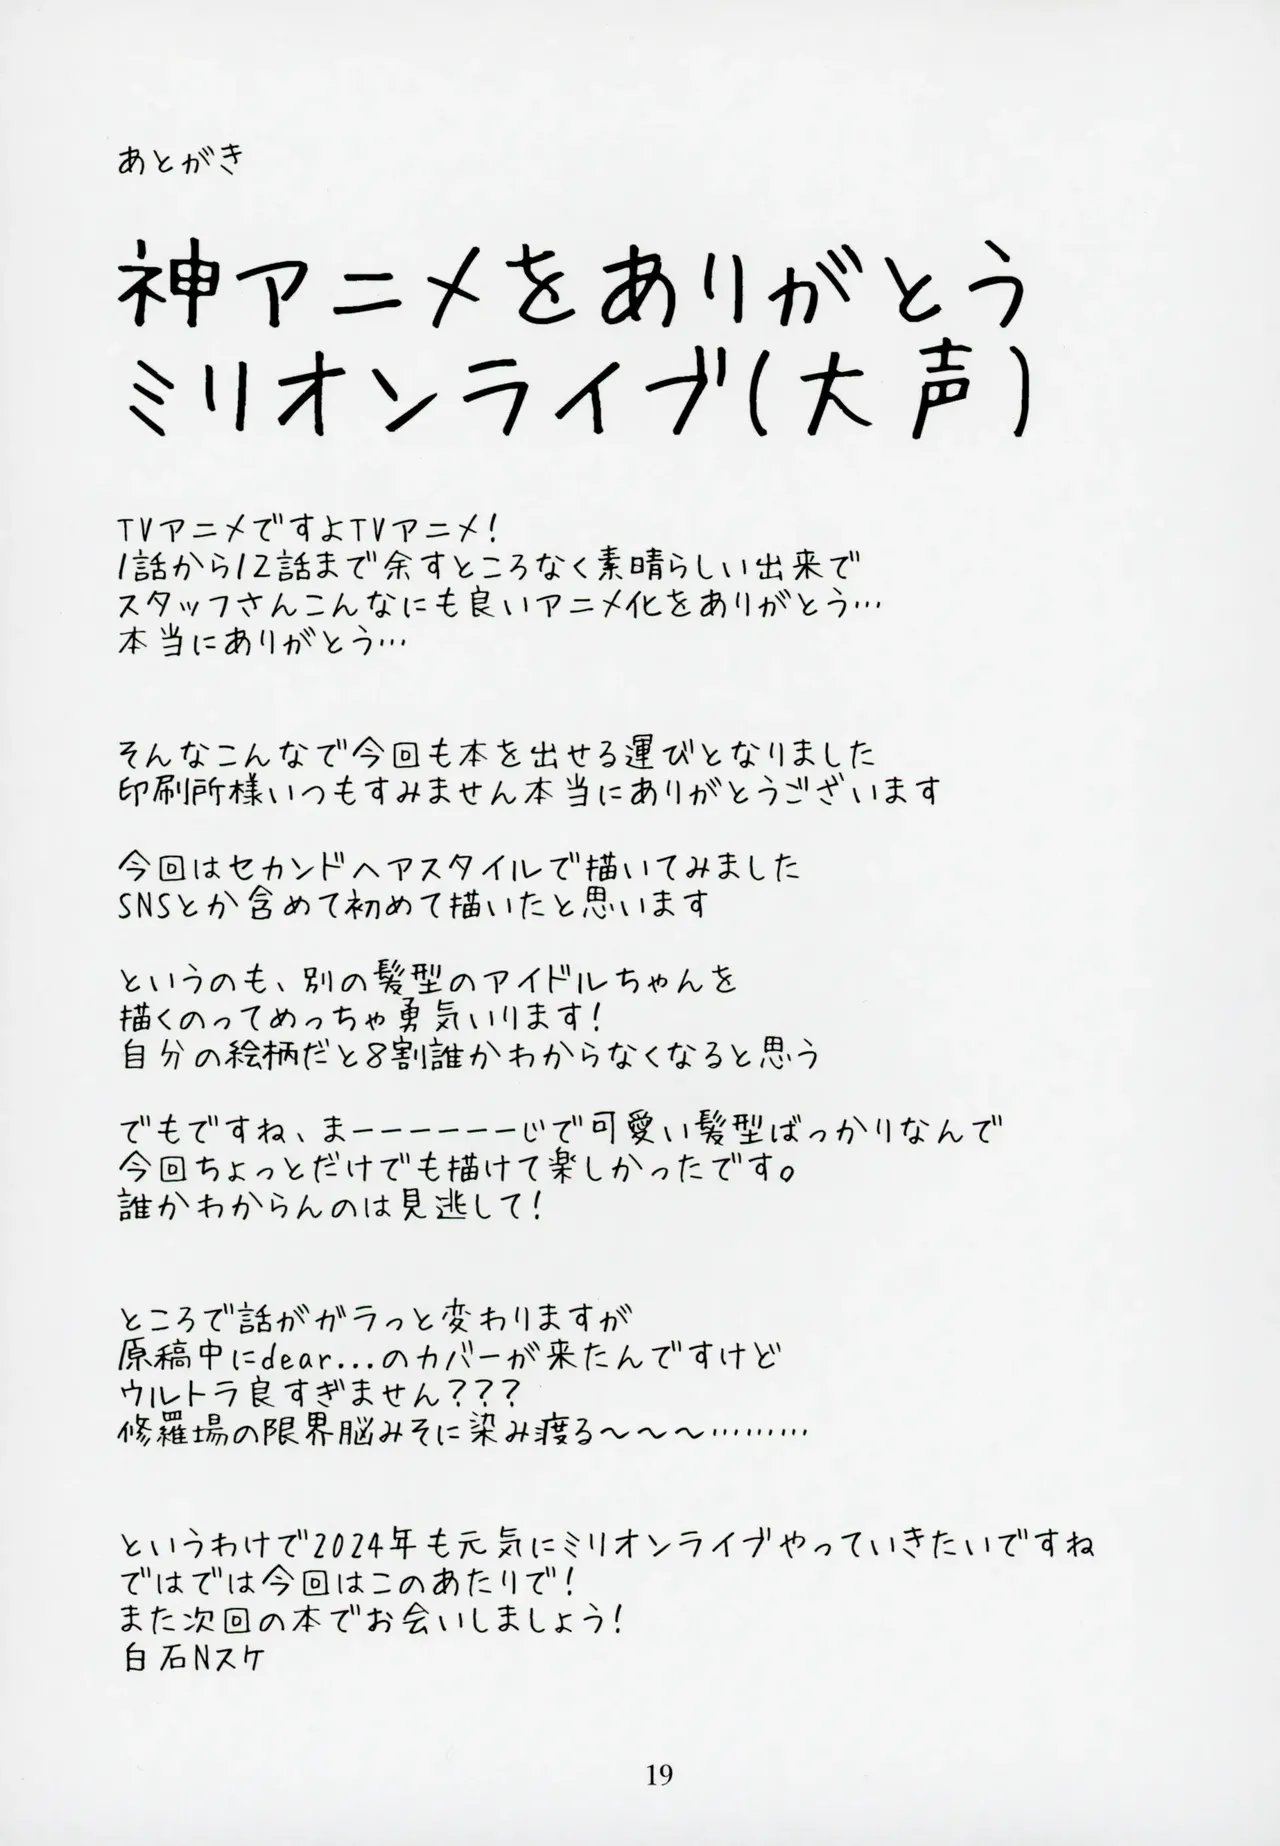 あとがき
神アニメをありがとう
ミリオンライブ(大声)
TVアニメですよTVアニメ!
1話から12話まで余すところなく素晴らしい出来で
スタッフさんこんなにも良いアニメ化をありがとう…
本当にありがとう…
そんなこんなで今回も本を出せる運びとなりました
印刷所様いつもすみません本当にありがとうございます
今回はセカンドヘアスタイルで描いてみました
SNSとか含めて初めて描いたと思います
というのも、別の髪型のアイドルちゃんを
描くのってめっちゃ勇気いります!
自分の絵柄だと8割誰かわからなくなると思う
でもですね、まーーーーーーじで可愛い髪型ばっかりなんで
今回ちょっとだけでも描けて楽しかったです。
誰かわからんのは見逃して!
ところで話がガラっと変わりますが
原稿中にdear...のカバーが来たんですけど
ウルトラ良すぎません???
修羅場の限界脳みそに染み渡る〜〜〜………
というわけで2024年も元気にミリオンライブやっていきたいですね
ではでは今回はこのあたりで!
また次回の本でお会いしましょう!
白石Nスケ
19